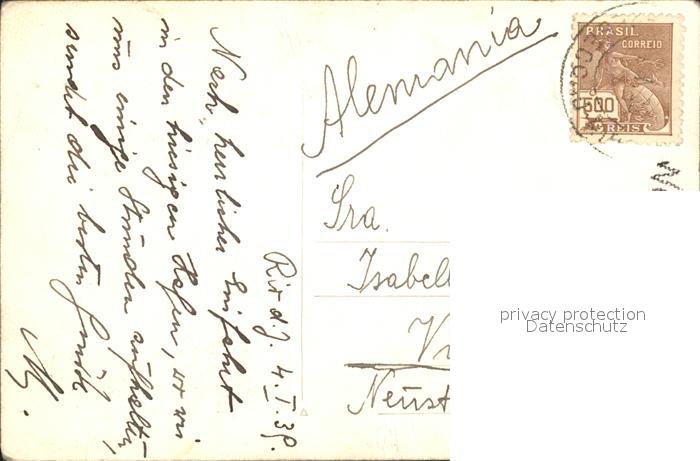 Rio d. J. 4. I. 39.
Nach herrlicher Einfahrt
in den hiesigen Hafen, wo wir
uns einige Stunden aufhalten,
sendet die besten Grüße
M.
Alemania
Sra.
Isabell
Neust
BRASIL
CORREIO
500
REIS
privacy protection
Datenschutz